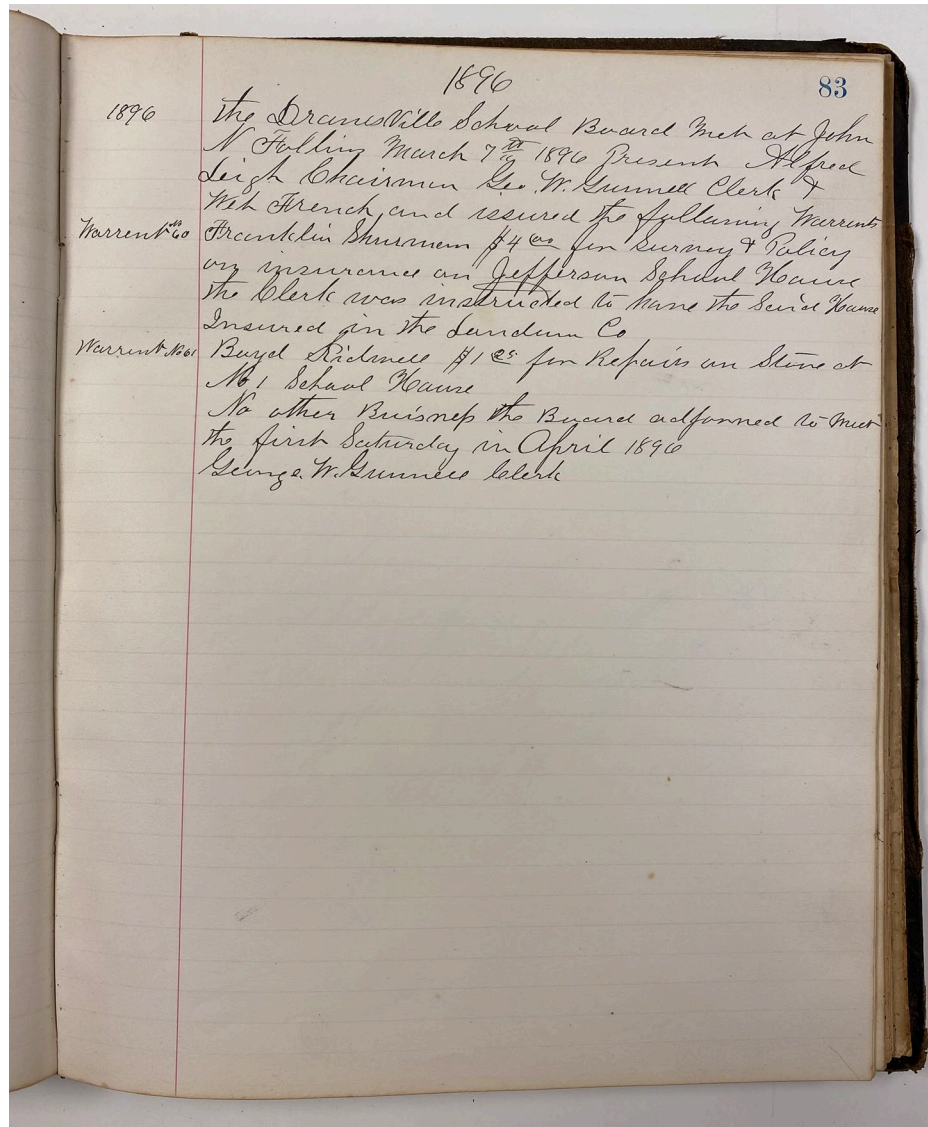 1896
83
1896
the Dranesville School Board Met at John
N Follin March 7th 1896 Present Alfred
Leigh Chairman Geo. W. Gunnell Clerk &
Wm French and issured the following Warrents
Warrent No 60
Franklin Shurman $4 00 for Survey & Policy
on insurance on Jefferson School House
the Clerk was instructed to have the Said House
Insured in the Co
Warrent No 61
Boyd Kidwell $1 25 for Repairs on Stove at
No 1 School House
No other Buisness the Board adjorned to meet
the first Saturday in April 1896
George. W. Gunnell Clerk